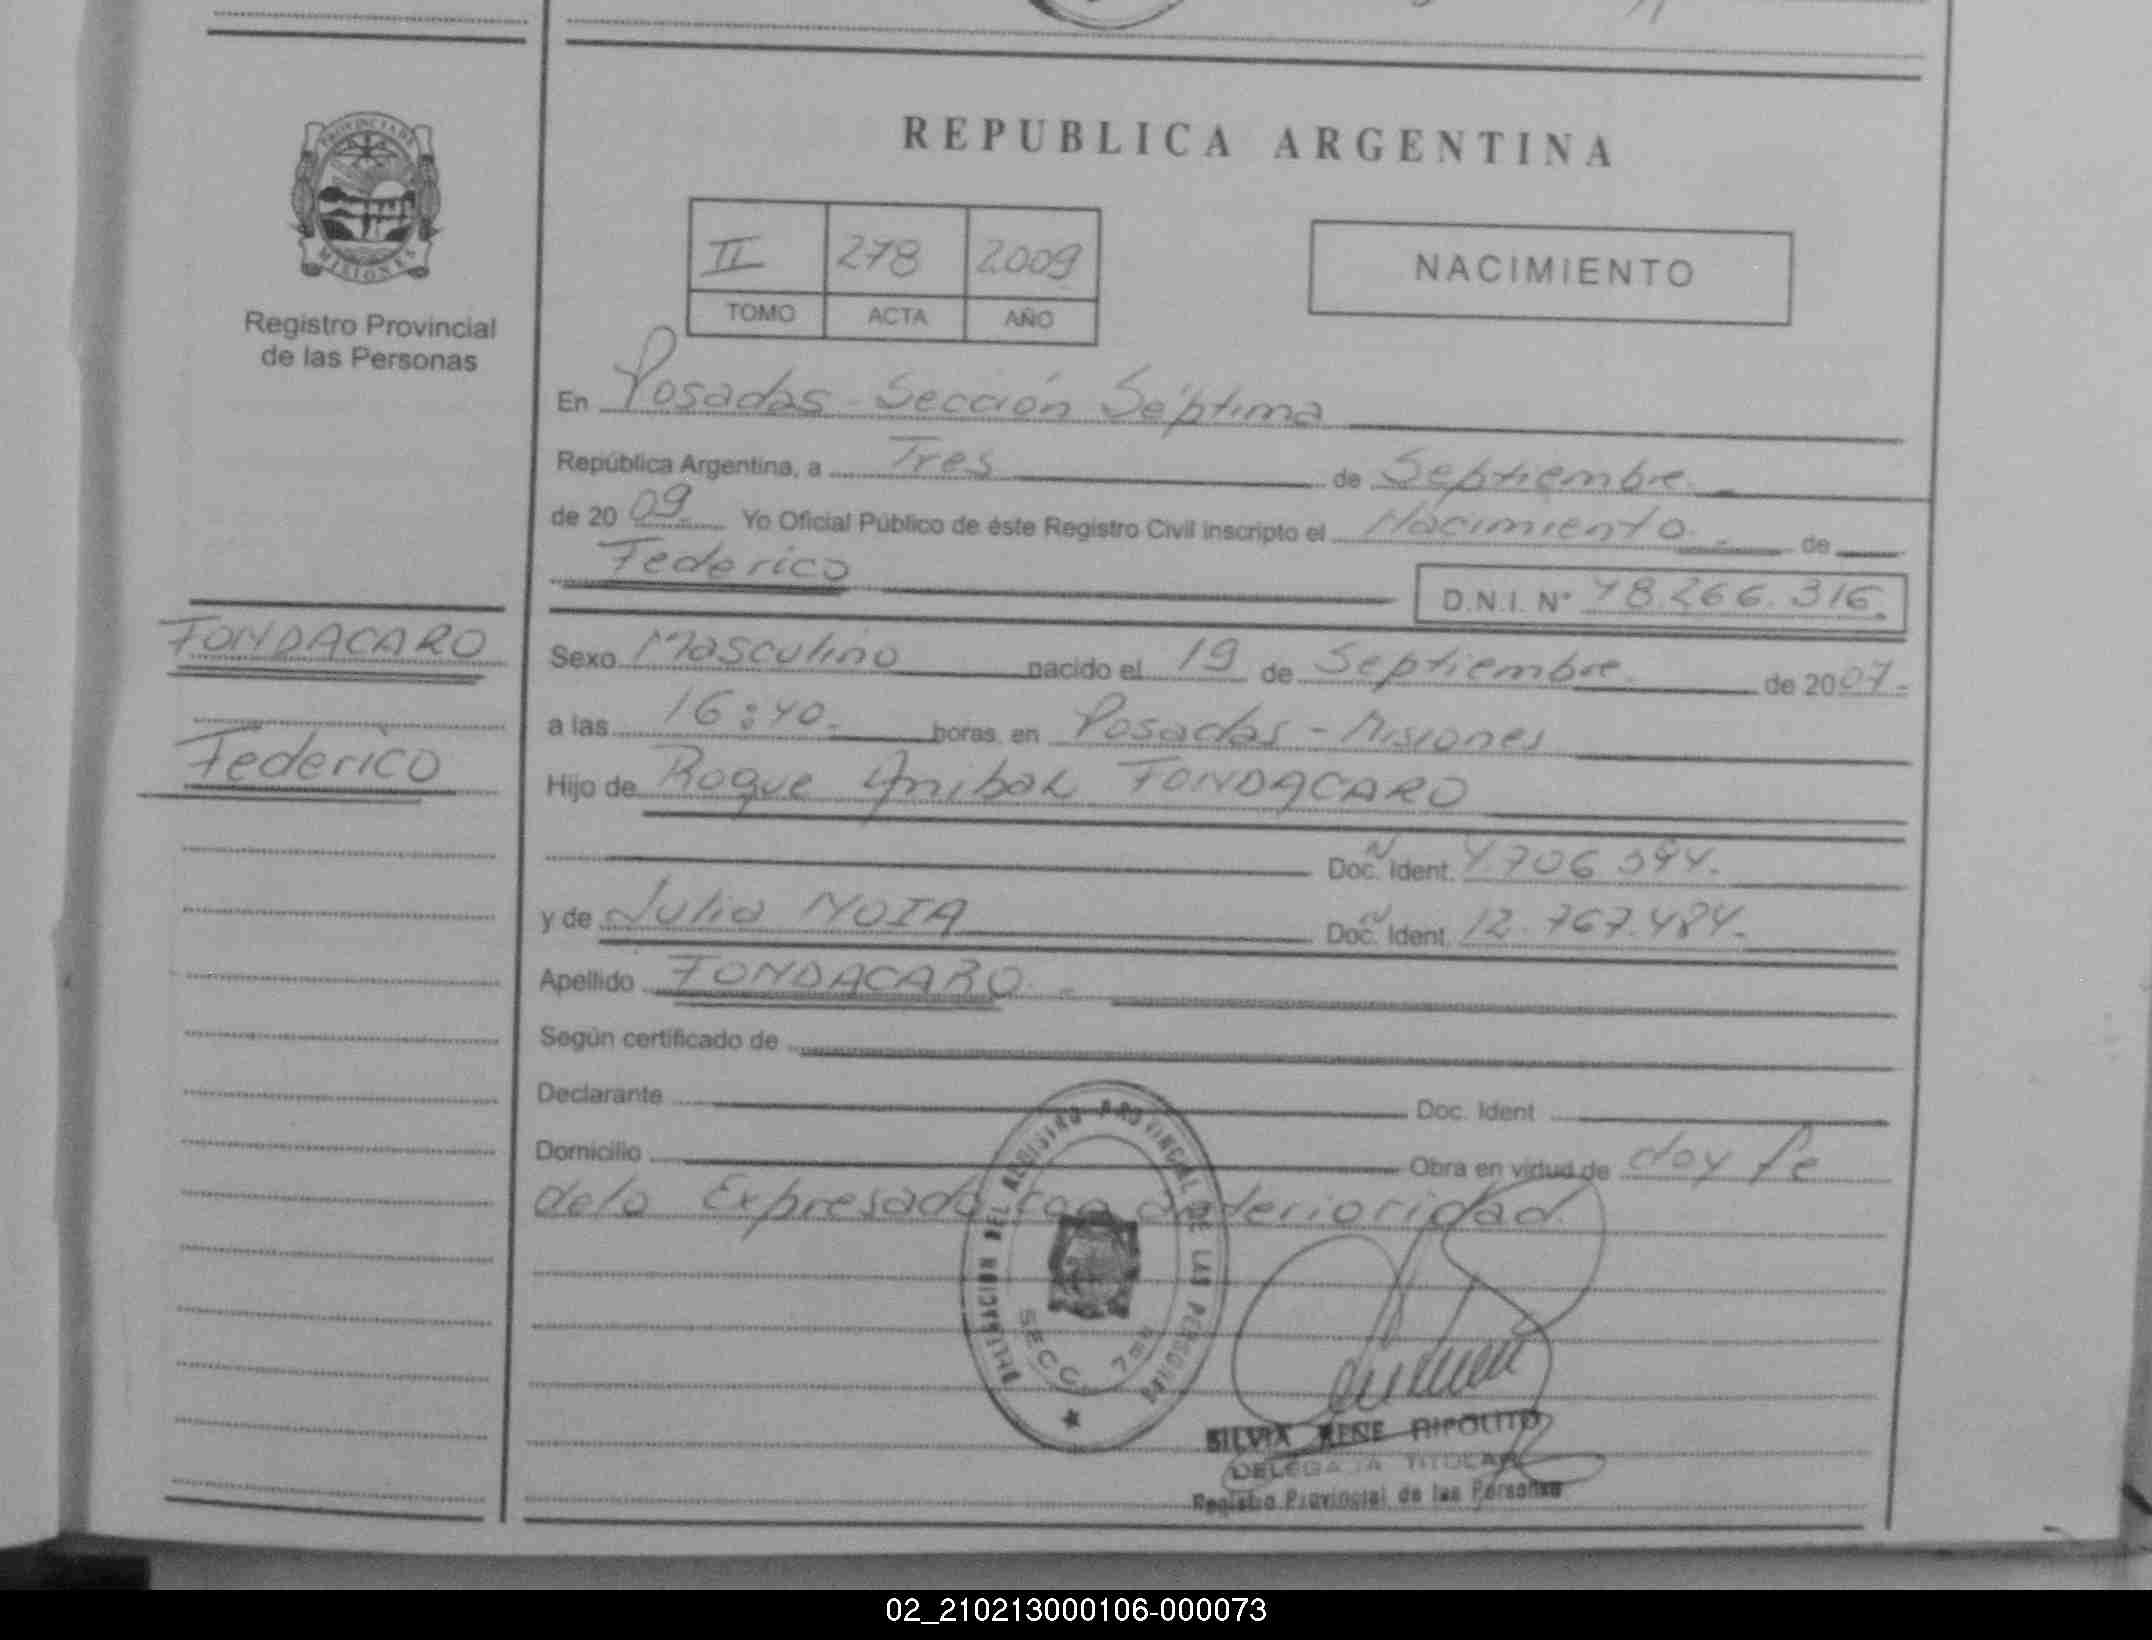 PROVINCIA DE
MISIONES
Registro Provincial
de las Personas
FONDACARO
Federico
REPUBLICA ARGENTINA
II 278 2009
TOMO ACTA AÑO
NACIMIENTO
En Posadas - Sección Séptima
República Argentina, a Tres de Septiembre.
de 2009. Yo Oficial Público de éste Registro Civil inscripto el Nacimiento. de
Federico D.N.I. N° 48.266.316.
Sexo Masculino nacido el 19 de Septiembre de 2007.
a las 16:40. horas, en Posadas - Misiones
Hijo de Roque Anibal FONDACARO
Doc. Ident.
y de Julia NOIA Doc. Ident. 12.767.484.
Apellido FONDACARO. -
Según certificado de
Declarante Doc. Ident
Domicilio Obra en virtud de doy fe
delo Expresado con anterioridad.
DELEGACION DEL REGISTRO PROVINCIAL DE LAS PERSONAS
SECC. 7ma
SILVIA RENE RIPOLITO
DELEGADA TITULAR
Registro Provincial de las Personas
02_210213000106-000073